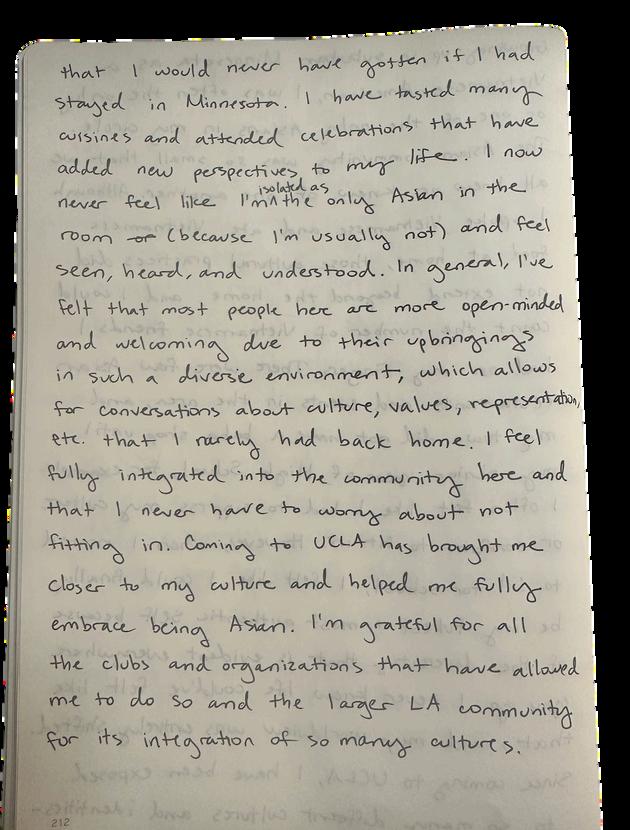 that I would never have gotten if I had
stayed in Minnesota. I have tasted many
cuisines and attended celebrations that have
added new perspectives to my life. I now
never feel like I'm isolated as the only Asian in the
room or (because I'm usually not) and feel
seen, heard, and understood. In general, I've
felt that most people here are more open-minded
and welcoming due to their upbringings
in such a diverse environment, which allows
for conversations about culture, values, representation,
etc. that I rarely had back home. I feel
fully integrated into the community here and
that I never have to worry about not
fitting in. Coming to UCLA has brought me
closer to my culture and helped me fully
embrace being Asian. I'm grateful for all
the clubs and organizations that have allowed
me to do so and the larger LA community
for its integration of so many cultures.
212